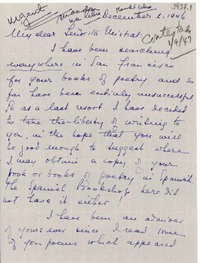 urgent
December 2, 1946
My dear Señorita Mistral
I have been searching
everywhere in San Francisco
for your books of poetry and so
far have been entirely unsuccessful
so as a last resort I have decided
to take the liberty of writing to
you, in the hope that you will
be good enough to suggest where
I may obtain a copy of your
book or books of poetry in Spanish
The Spanish Bookshop here did
not have it either.
I have been an admirer
of yours ever since I read some
of your poems which appeared